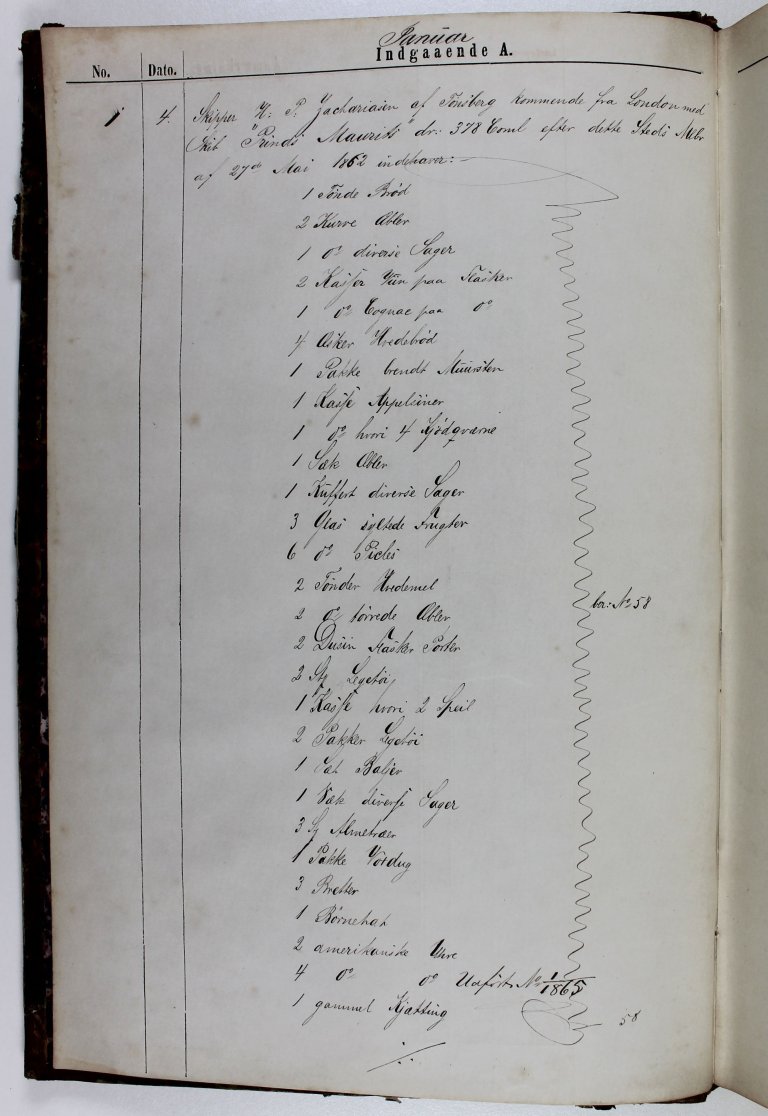 Januar
Indgaaende A.
No. Dato.
1 4. Skipper H. P. Zachariasen af Tönsberg kommende fra London med
Skib "Prinds Maurits" dr: 378 Coml efter dette Steds Mlbr
af 27de Mai 1862 indehaver:
1 Tönde Bröd
2 Kurve Æbler
1 do diverse Sager
2 Kasser Viin paa Flasker
1 do Cognac paa do
4 Æsker Hvedebröd
1 Pakke brendt Muursten
1 Kasse Appelsiner
1 do hvori 4 Kjödqværne
1 Sæk Æbler
1 Kuffert diverse Sager
3 Glas syltede Frugter
6 do Picles
2 Tönder Hvedemel
2 do törrede Æbler
ber: No 58
2 Dusin Flasker Porter
2 Stg Legetöi
1 Kasse hvori 2 Speil
2 Pakker Legetöi
1 Sæt Baljer
1 Sæk diverse Sager
3 Stg Almetræer
1 Pakke Voxdug
3 Bretter
1 Börnehat
2 amerikanske Uhre
4 do do Udfört No 1/1865
1 gammel Kjætting
58
./.